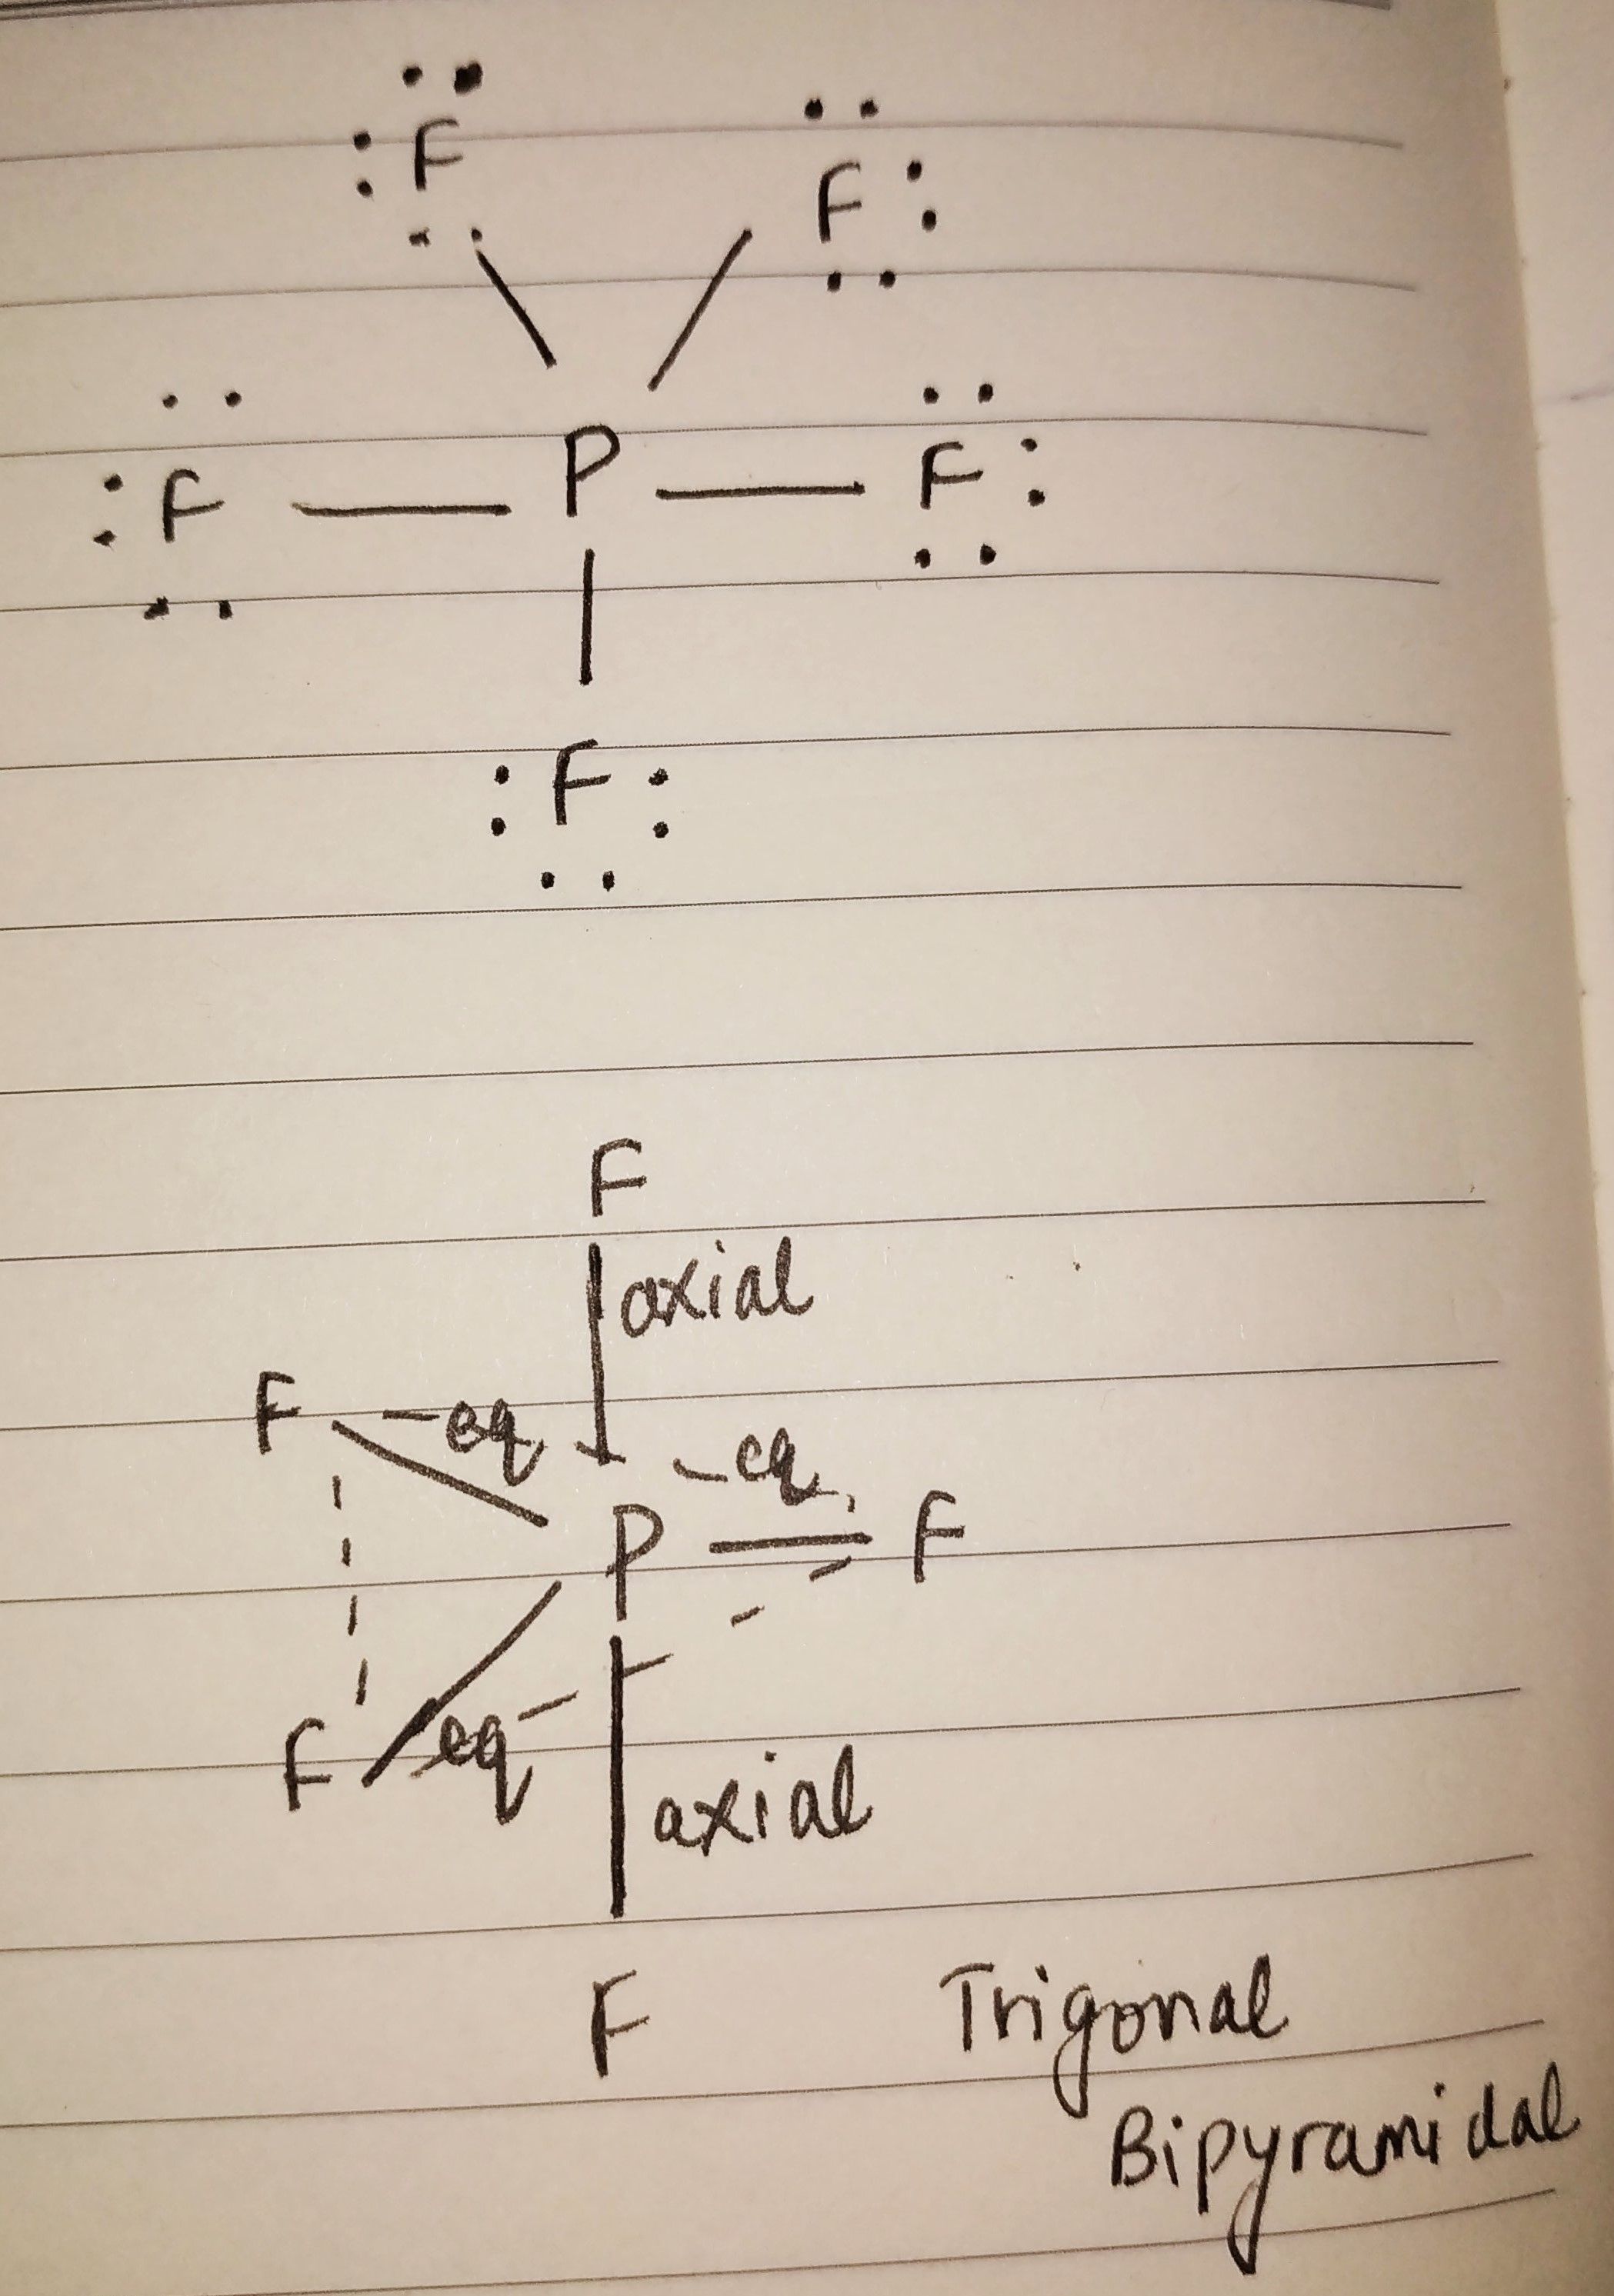 F F
F P F
F
F
axial
F eq eq
P F
F eq
axial
F
Trigonal
Bipyramidal